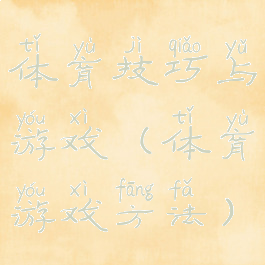 tǐ yù jì qiǎo yǔ
体育技巧与
yóu xì tǐ yù
游戏（体育
yóu xì fāng fǎ
游戏方法）